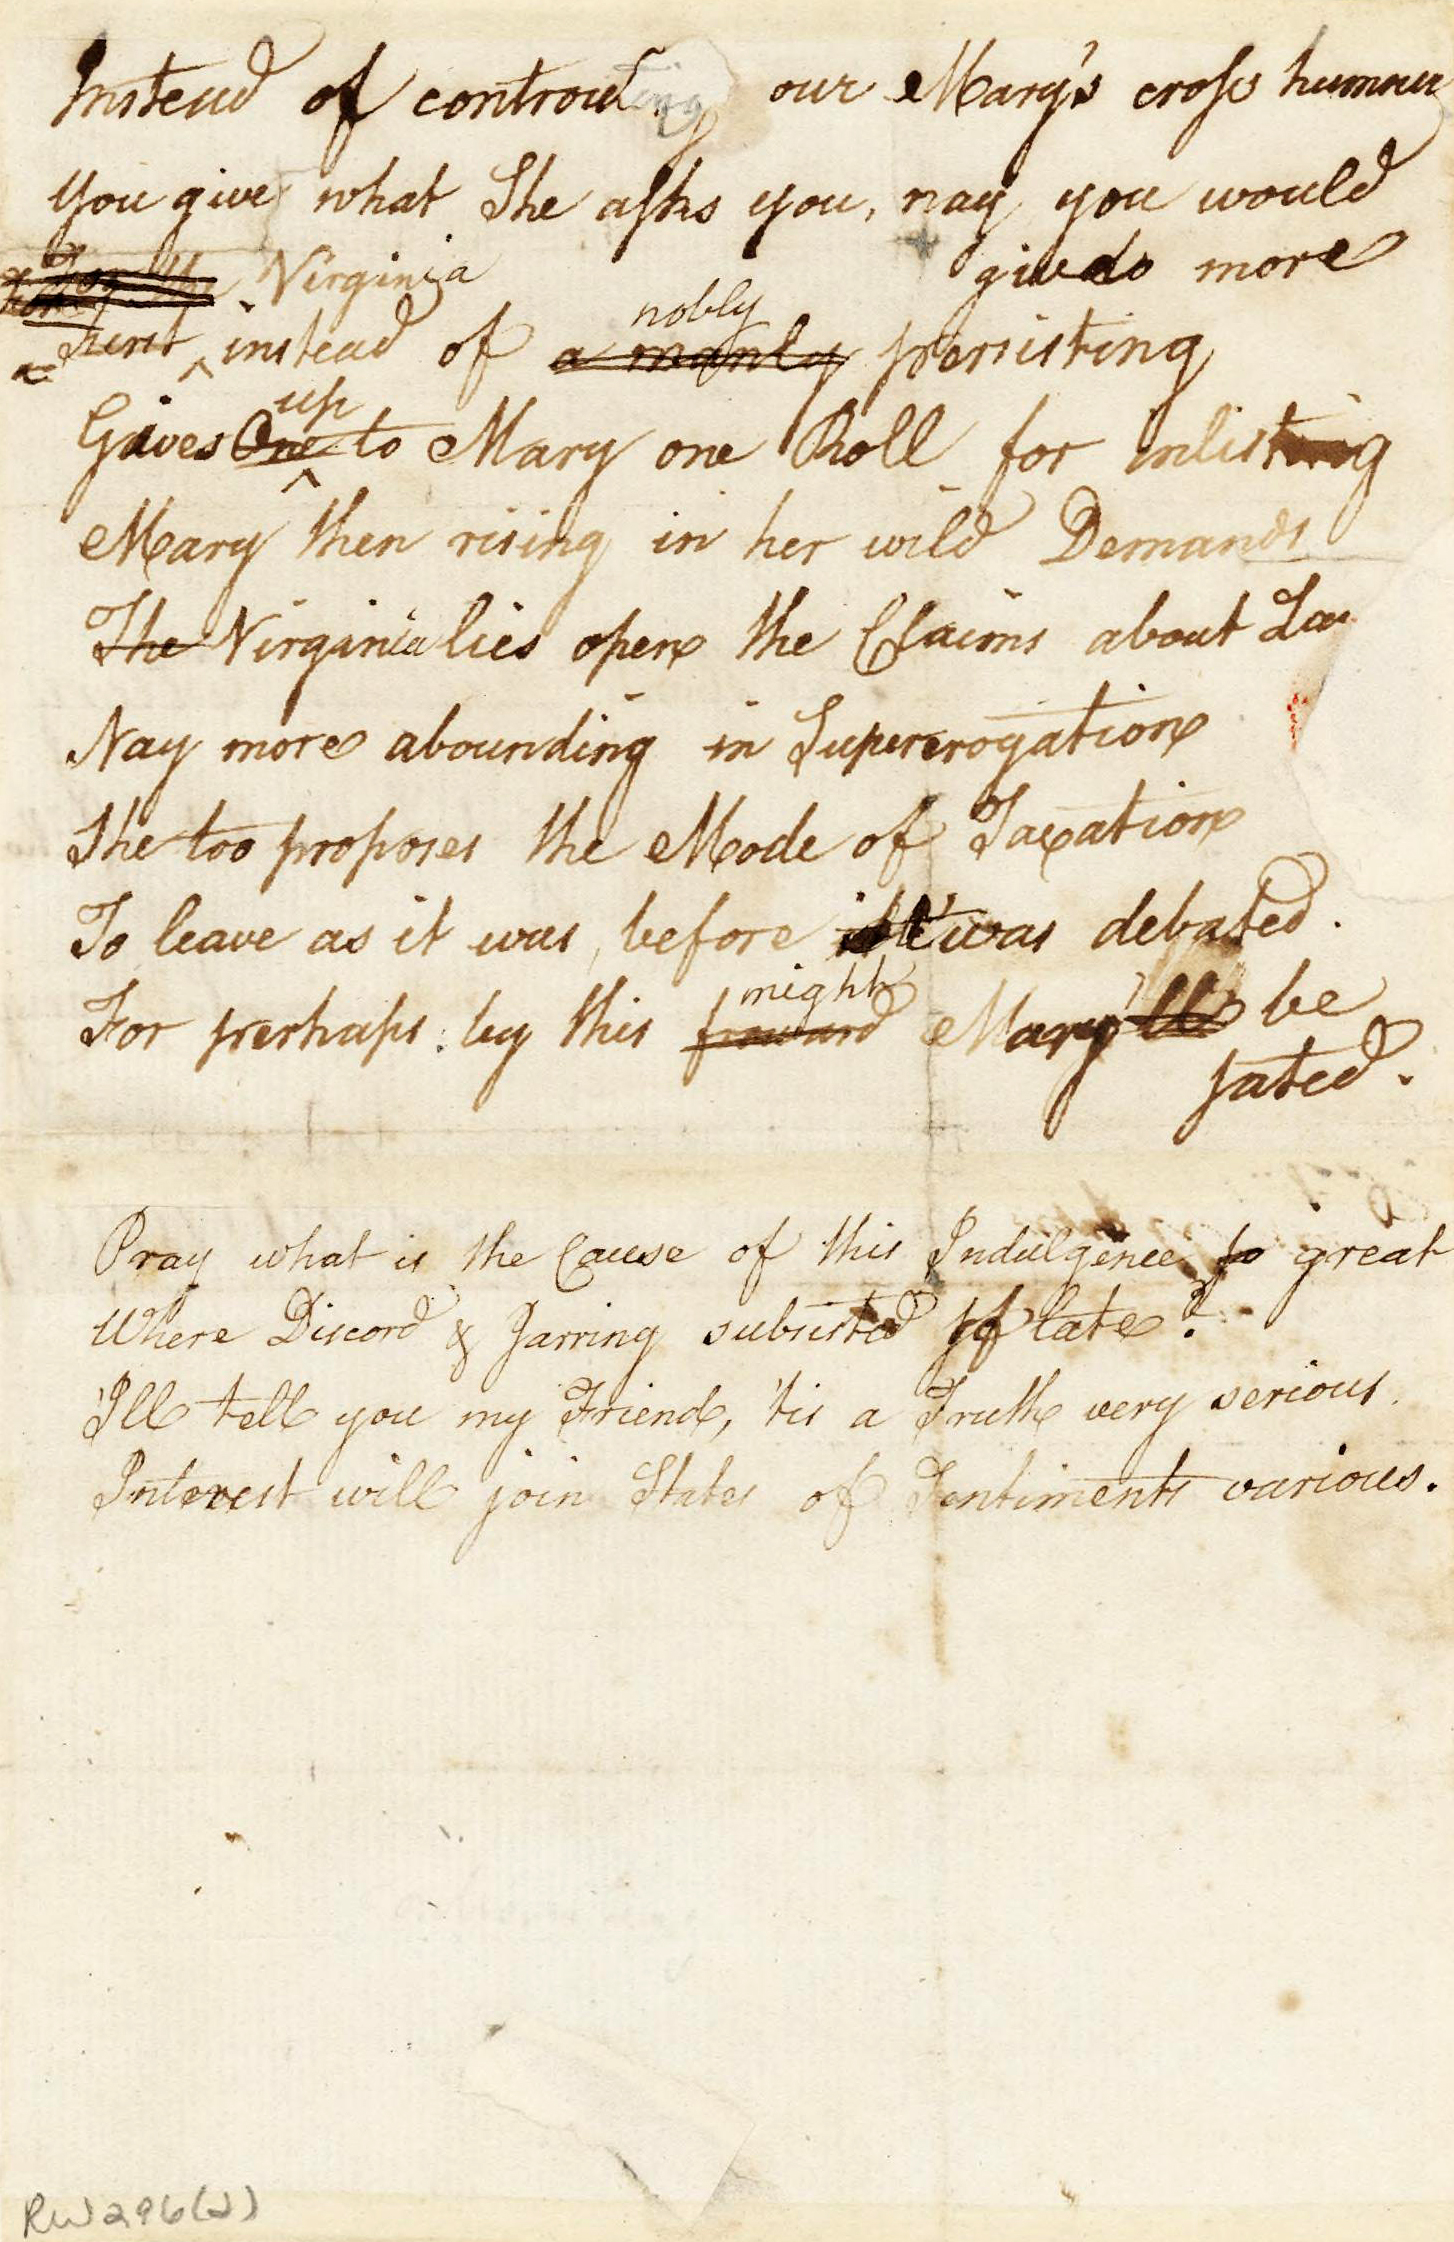 Instead of controuling our Mary's cross humour
You give what She asks you, nay you would
give do more
For the Virginia
nobly
First instead of a manly persisting
up
Gives One to Mary one Roll for inlisting
Mary then rising in her wild Demands
The Virginia lies open the Claims about La
Nay more abounding in Supererogation
She too proposes the Mode of Taxation
To leave as it was, before 't was debated.
might
For perhaps by this froward Mary'll be
sated.
Pray what is the Cause of this Indulgence so great
Where Discord & Jarring subsisted of late?
I'll tell you my Friend, 'tis a Truth very serious.
Interest will join States of Sentiments various.
RW296(2)